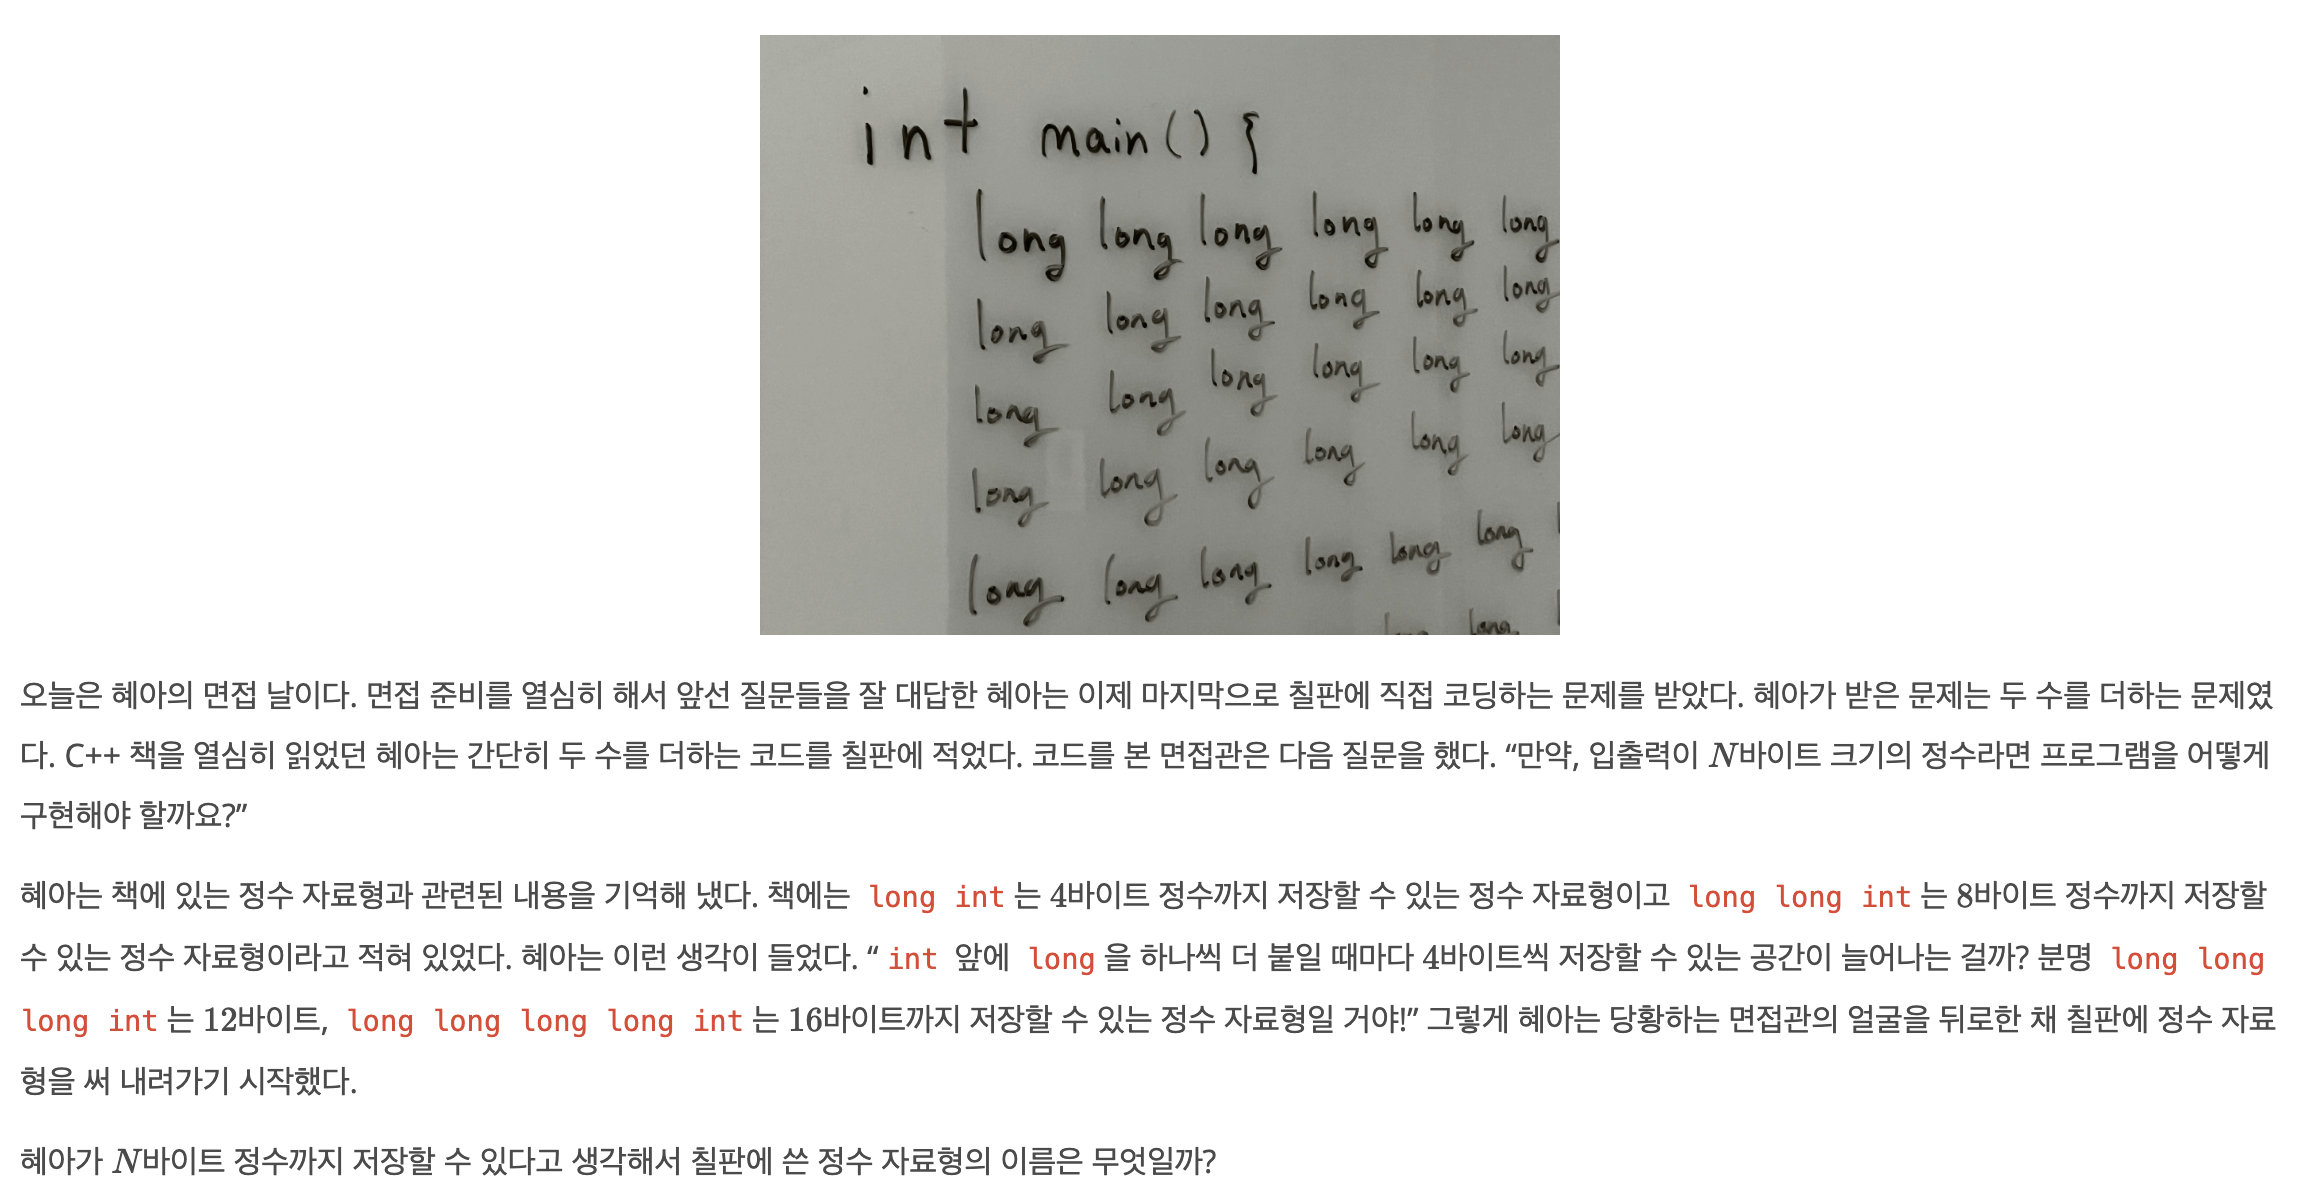 int main() {
long long long long long long
long long long long long long
long long long long long long
long long long long long long
long long long long long long
long long
오늘은 혜아의 면접 날이다. 면접 준비를 열심히 해서 앞선 질문들을 잘 대답한 혜아는 이제 마지막으로 칠판에 직접 코딩하는 문제를 받았다. 혜아가 받은 문제는 두 수를 더하는 문제였
다. C++ 책을 열심히 읽었던 혜아는 간단히 두 수를 더하는 코드를 칠판에 적었다. 코드를 본 면접관은 다음 질문을 했다. “만약, 입출력이 N바이트 크기의 정수라면 프로그램을 어떻게
구현해야 할까요?”
혜아는 책에 있는 정수 자료형과 관련된 내용을 기억해 냈다. 책에는 long int 는 4바이트 정수까지 저장할 수 있는 정수 자료형이고 long long int 는 8바이트 정수까지 저장할
수 있는 정수 자료형이라고 적혀 있었다. 혜아는 이런 생각이 들었다. “ int 앞에 long 을 하나씩 더 붙일 때마다 4바이트씩 저장할 수 있는 공간이 늘어나는 걸까? 분명 long long
long int 는 12바이트, long long long long int 는 16바이트까지 저장할 수 있는 정수 자료형일 거야!” 그렇게 혜아는 당황하는 면접관의 얼굴을 뒤로한 채 칠판에 정수 자료
형을 써 내려가기 시작했다.
혜아가 N바이트 정수까지 저장할 수 있다고 생각해서 칠판에 쓴 정수 자료형의 이름은 무엇일까?